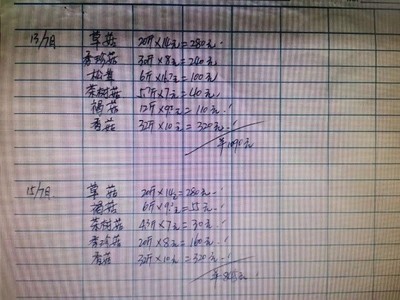 13/7日 草菇 20斤×14元=280元
秀珍菇 30斤×8元=240元
松茸 6斤×16.7元=100元
茶树菇 5.7斤×7元=40元
褐菇 12斤×9.2元=110元
香菇 32斤×10元=320元
¥1090元
15/7日 草菇 20斤×14元=280元
褐菇 6斤×9.2元=55元
茶树菇 4.3斤×7元=30元
秀珍菇 20斤×8元=160元
香菇 32斤×10元=320元
¥845元